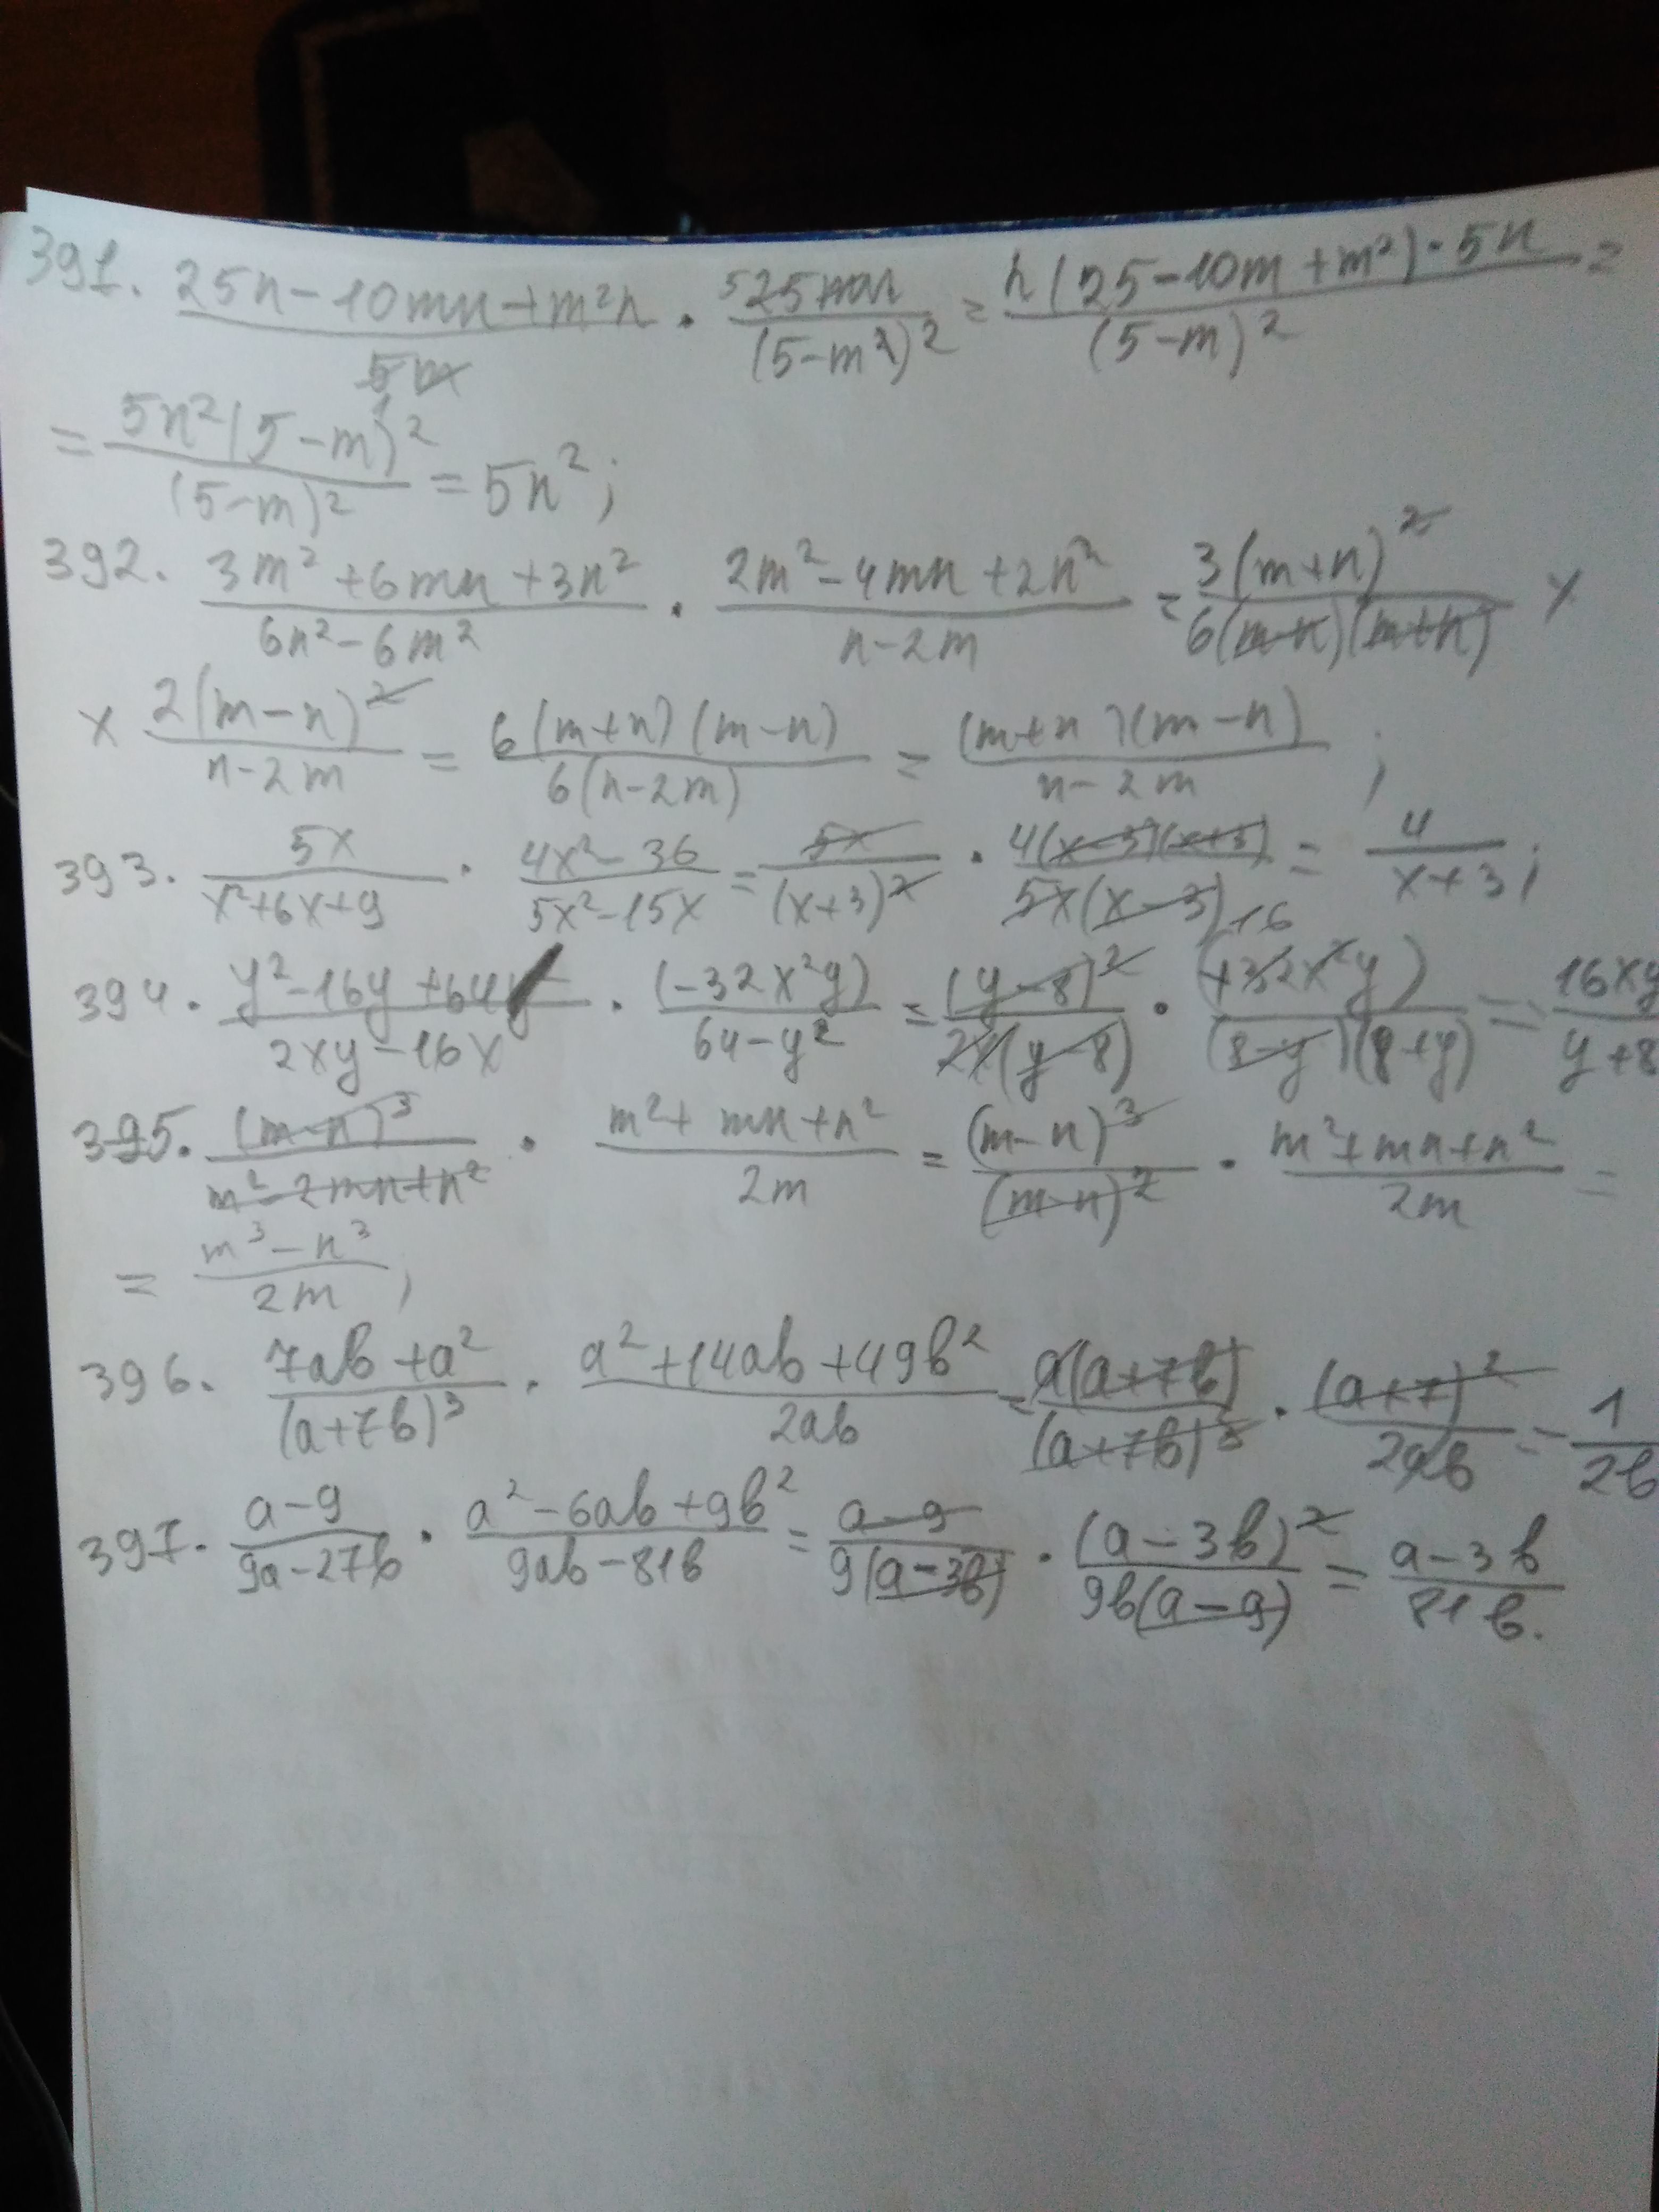 391. (25n - 10mn + m²n)/(5m) · (25mn)/(5-m)² = (n(25 - 10m + m²) · 5n)/(5-m)² =
= (5n²(5-m)²)/(5-m)² = 5n²;
392. (3m² + 6mn + 3n²)/(6n² - 6m²) · (2m² - 4mn + 2n²)/(n-2m) = (3(m+n)²)/(6(m-n)(m+n)) ×
× (2(m-n)²)/(n-2m) = (6(m+n)(m-n))/(6(n-2m)) = ((m+n)(m-n))/(n-2m);
393. (5x)/(x²+6x+9) · (4x²-36)/(5x²-15x) = (5x)/(x+3)² · (4(x-3)(x+3))/(5x(x-3)) = 4/(x+3);
394. (y²-16y+64)/(2xy-16x) · (-32x²y)/(64-y²) = (y-8)²/(2x(y-8)) · (+32x²y)/((8-y)(8+y)) = (16xy)/(y+8)
395. (m-n)³/(m²-2mn+n²) · (m²+mn+n²)/(2m) = (m-n)³/(m-n)² · (m²+mn+n²)/(2m) =
= (m³-n³)/(2m);
396. (7ab+a²)/(a+7b)³ · (a²+14ab+49b²)/(2ab) = (a(a+7b))/(a+7b)³ · (a+7)²/(2ab) = 1/(2b)
397. (a-9)/(9a-27b) · (a²-6ab+9b²)/(9ab-81b) = (a-9)/(9(a-3b)) · (a-3b)²/(9b(a-9)) = (a-3b)/(81b).